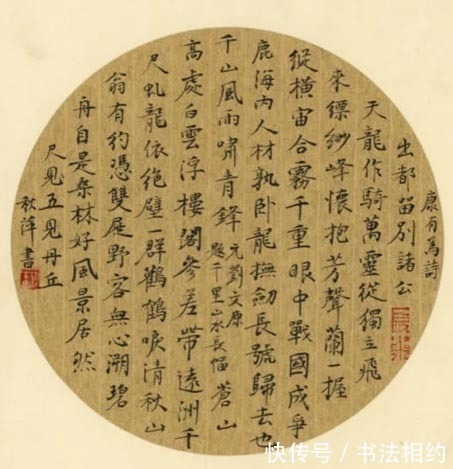 康有為詩
出都留別諸公
天龍作騎萬靈從獨立飛
來縹緲峰懷抱芳馨蘭一握
縱橫宙合霧千重眼中戰國成爭
鹿海內人材孰臥龍撫劍長號歸去也
千山風雨嘯青鋒
元劉文原
題千里山水長幅
蒼山
高處白雲浮樓閣參差帶遠洲千
尺虬龍依絕壁一群鸛鶴唳清秋山
翁有約憑雙屐野客無心溯碧
舟自是桑林好風景居然
尺見五見丹丘
秋萍書
快传号 / 书法相约